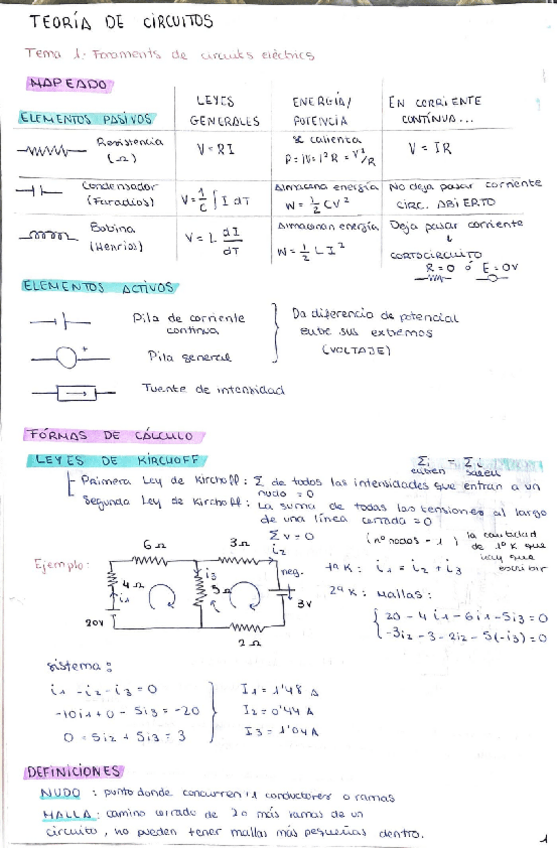 TEORÍA DE CIRCUITOS
Tema 1: Foraments de circuits elèctrics
MAPEADO
LEYES GENERALES
ENERGÍA/ POTENCIA
EN CORRIENTE CONTÍNUA...
ELEMENTOS PASIVOS
Resistencia (Ω)
V = RI
se calienta
P = IV = I²R = V²/R
V = IR
Condensador (Faradios)
V = 1/C ∫ I dT
Almacena energía
W = 1/2 CV²
No deja pasar corriente
CIRC. ABIERTO
Bobina (Henrios)
V = L dI/dT
Almacenan energía
W = 1/2 L I²
Deja pasar corriente
↓
CORTOCIRCUITO
R=0 ó E=0V
ELEMENTOS ACTIVOS
Pila de corriente continua
Pila general
+
Fuente de intensidad
Da diferencia de potencial
entre sus extremos
(VOLTAJE)
FÓRMAS DE CÁLCULO
LEYES DE KIRCHOFF
Σi entren = Σi salen
Primera Ley de Kirchoff: Σ de todas las intensidades que entran a un
nudo = 0
Segunda Ley de Kirchoff: La suma de todas las tensiones al largo
de una línea cerrada = 0
Σv = 0
(nº nodos - 1) la cantidad
de 1º K que
hay que
escribir
Ejemplo:
6Ω
3Ω
i2
4Ω
i1
i3
5Ω
neg.
3V
20V
2Ω
1ª K: i1 = i2 + i3
2ª K: Mallas:
20 - 4i1 - 6i1 - 5i3 = 0
-3i2 - 3 - 2i2 - 5(-i3) = 0
sistema:
i1 - i2 - i3 = 0
-10i1 + 0 - 5i3 = -20
0 = 5i2 + 5i3 = 3
I1 = 1'48 A
I2 = 0'44 A
I3 = 1'04 A
DEFINICIONES
NUDO: punto donde concurren conductores o ramas
MALLA: camino cerrado de 2 o más ramas de un
circuito, no pueden tener mallas más pequeñas dentro.
1